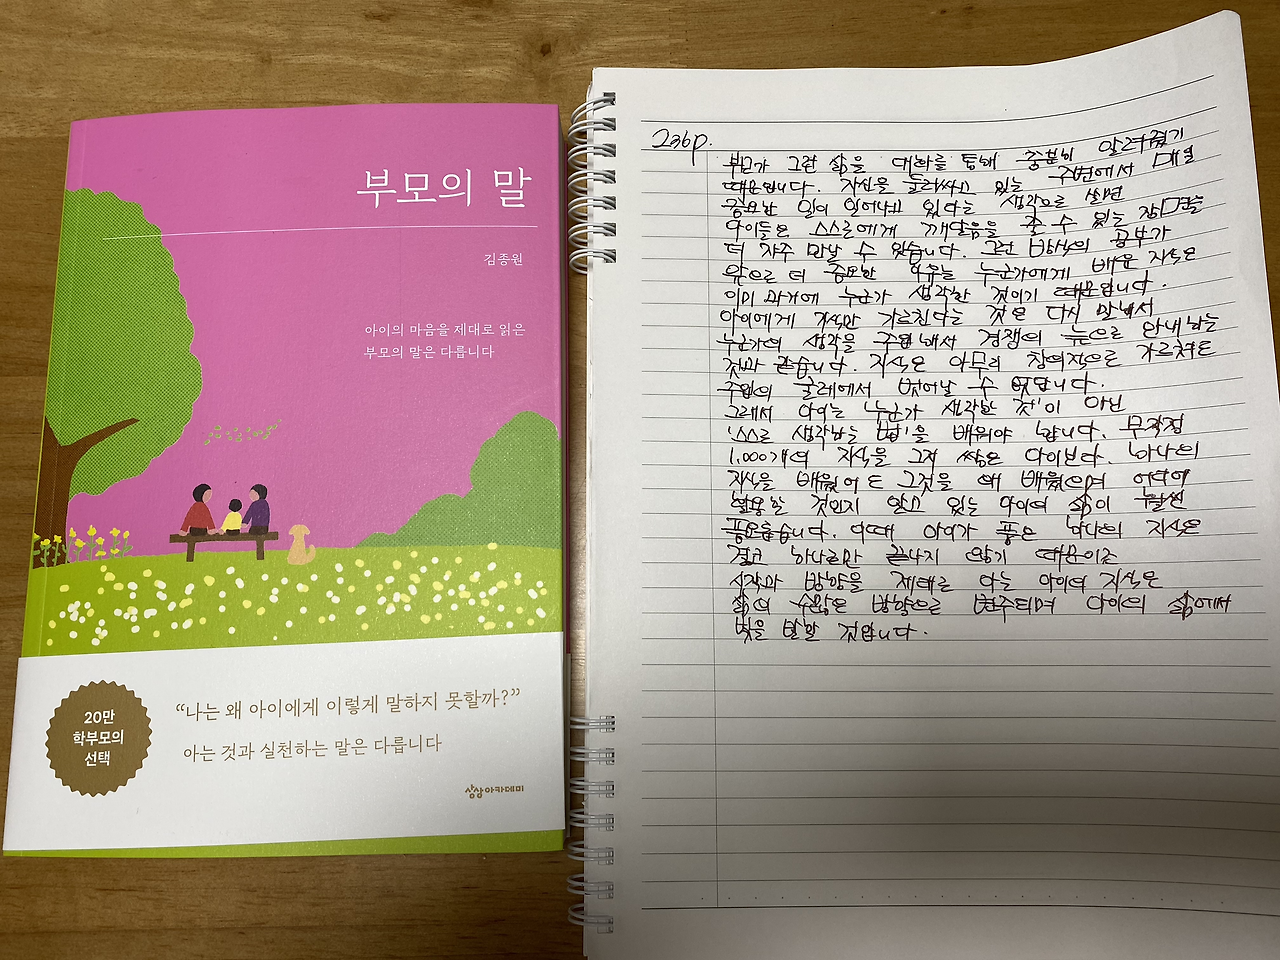 부모의 말
김종원
아이의 마음을 제대로 읽은
부모의 말은 다릅니다
20만
학부모의
선택
“나는 왜 아이에게 이렇게 말하지 못할까?”
아는 것과 실천하는 말은 다릅니다
상상아카데미
236p.
부모가 그런 삶을 대화를 통해 충분히 알려줬기
때문입니다. 자신을 둘러싸고 있는 주변에서 매일
중요한 일이 일어나고 있다는 생각으로 살면
아이들은 스스로에게 깨달음을 줄 수 있는 장면을
더 자주 만날 수 있습니다. 그런 방식의 공부가
앞으로 더 중요한 이유는 누군가에게 배운 지식은
이미 과거에 누군가 생각한 것이기 때문입니다.
아이에게 지식만 가르친다는 것은 다시 말해서
누군가의 생각을 주입해서 경쟁의 늪으로 안내하는
것과 같습니다. 지식은 아무리 창의적으로 가르쳐도
주입의 굴레에서 벗어날 수 없습니다.
그래서 아이는 '누군가 생각한 것'이 아닌
'스스로 생각하는 법'을 배워야 합니다. 무작정
1,000개의 지식을 그저 쌓은 아이보다. 하나의
지식을 배웠어도 그것을 왜 배웠으며 어디에
활용할 것인지 알고 있는 아이의 삶이 훨씬
풍요롭습니다. 이때 아이가 품은 하나의 지식은
결코 하나로만 끝나지 않기 때문이죠
시작과 방향을 제대로 아는 아이의 지식은
삶의 수많은 방향으로 변주되며 아이의 삶에서
빛을 발할 것입니다.